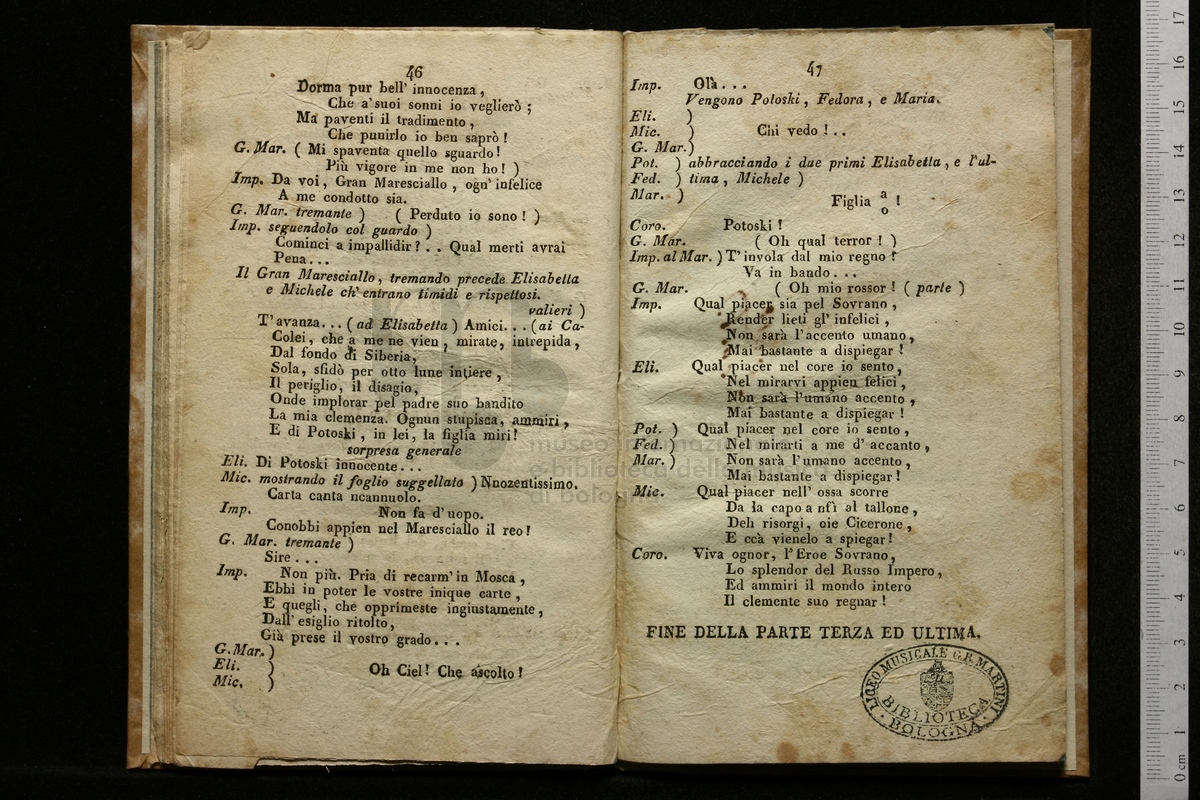 46
Dorma pur bell' innocenza,
Che a' suoi sonni io veglierò;
Ma paventi il tradimento,
Che punirlo io ben saprò!
G. Mar. ( Mi spaventa quello sguardo!
Più vigore in me non ho! )
Imp. Da voi, Gran Maresciallo, ogn' infelice
A me condotto sia.
G. Mar. tremante ) ( Perduto io sono! )
Imp. seguendolo col guardo )
Cominci a impallidir?.. Qual merti avrai
Pena...
Il Gran Maresciallo, tremando precede Elisabetta
e Michele ch' entrano timidi e rispettosi.
valieri )
T' avanza... ( ad Elisabetta ) Amici... (ai Ca-
Colei, che a me ne vien, mirate, intrepida,
Dal fondo di Siberia,
Sola, sfidò per otto lune intiere,
Il periglio, il disagio,
Onde implorar pel padre suo bandito
La mia clemenza. Ognun stupisca, ammiri,
E di Potoski, in lei, la figlia miri!
sorpresa generale
Eli. Di Potoski innocente...
Mic. mostrando il foglio suggellato ) Nnozentissimo.
Carta canta ncannuolo.
Imp. Non fa d' uopo.
Conobbi appien nel Maresciallo il reo!
G. Mar. tremante )
Sire...
Imp. Non più. Pria di recarm' in Mosca,
Ebbi in poter le vostre inique carte,
E quegli, che opprimeste ingiustamente,
Dall' esiglio ritolto,
Già prese il vostro grado...
G. Mar. )
Eli. ) Oh Ciel! Che ascolto!
Mic. )
47
Imp. Olà...
Vengono Potoski, Fedora, e Maria.
Eli. )
Mic. ) Chi vedo!..
G. Mar. )
Pot. ) abbracciando i due primi Elisabetta, e l'ul-
Fed. ) tima, Michele )
Mar. ) Figlia a/o !
Coro. Potoski!
G. Mar. ( Oh qual terror! )
Imp. al Mar. ) T' invola dal mio regno!
Va in bando...
G. Mar. ( Oh mio rossor! ( parte )
Imp. Qual piacer sia pel Sovrano,
Render lieti gl' infelici,
Non sarà l' accento umano,
Mai bastante a dispiegar!
Eli. Qual piacer nel core io sento,
Nel mirarvi appien felici,
Non sarà l' umano accento,
Mai bastante a dispiegar!
Pot. ) Qual piacer nel core io sento,
Fed. ) Nel mirarti a me d' accanto,
Mar. ) Non sarà l' umano accento,
Mai bastante a dispiegar!
Mic. Qual piacer nell' ossa scorre
Da la capo a nfì al tallone,
Deh risorgi, oie Cicerone,
E ccà vienelo a spiegar!
Coro. Viva ognor, l' Eroe Sovrano,
Lo splendor del Russo Impero,
Ed ammiri il mondo intero
Il clemente suo regnar!
FINE DELLA PARTE TERZA ED ULTIMA.
LICEO MUSICALE G. B. MARTINI
BIBLIOTECA
BOLOGNA
0 cm 1 2 3 4 5 6 7 8 9 10 11 12 13 14 15 16 17